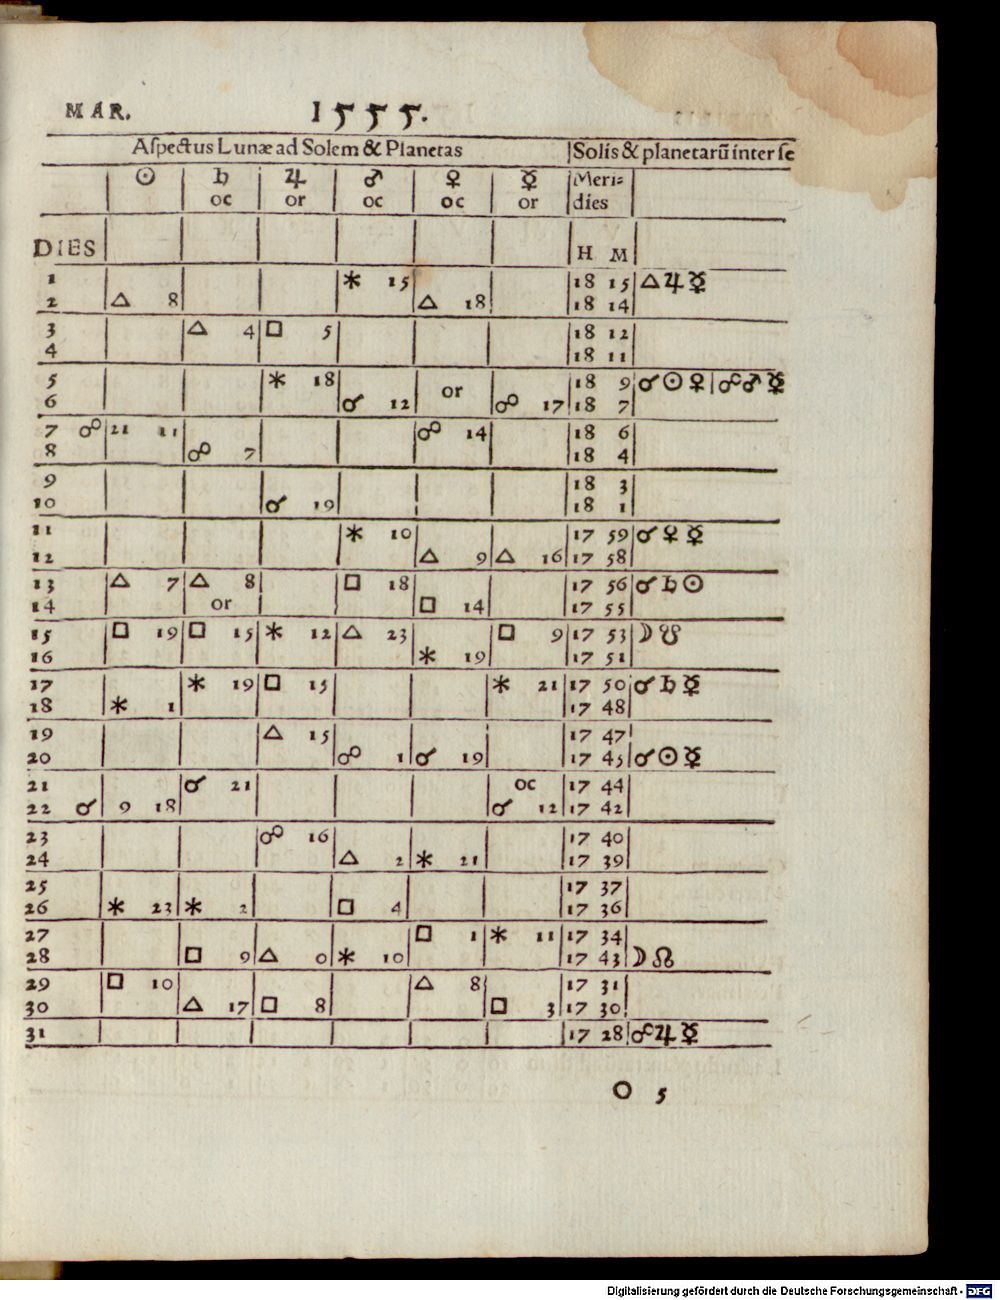 MAR. 1555.
Aſpectus Lunæ ad Solem & Planetas | Solis & planetarū inter ſe
☉ ♄ ♃ ♂ ♀ ☿ Meri⸗
oc or oc oc or dies
DIES H M
1 ⚹ 15 18 15 △ ♃ ☿
2 △ 8 △ 18 18 14
3 △ 4 □ 5 18 12
4 18 11
5 ⚹ 18 or 18 9 ☌ ☉ ♀ | ☍ ♂ ☿
6 ☌ 12 ☍ 17 18 7
7 ☍ 21 11 ☍ 14 18 6
8 ☍ 7 18 4
9 18 3
10 ☌ 19 18 1
11 ⚹ 10 17 59 ☌ ♀ ☿
12 △ 9 △ 16 17 58
13 △ 7 △ 8 □ 18 17 56 ☌ ♄ ☉
14 or □ 14 17 55
15 □ 19 □ 15 ⚹ 12 △ 23 □ 9 17 53 ☽ ☋
16 ⚹ 19 17 51
17 ⚹ 19 □ 15 ⚹ 21 17 50 ☌ ♄ ☿
18 ⚹ 1 17 48
19 △ 15 17 47
20 ☍ 1 ☌ 19 17 45 ☌ ☉ ☿
21 ☌ 21 oc 17 44
22 ☌ 9 18 ☌ 12 17 42
23 ☍ 16 17 40
24 △ 2 ⚹ 21 17 39
25 17 37
26 ⚹ 23 ⚹ 2 □ 4 17 36
27 □ 1 ⚹ 11 17 34
28 □ 9 △ 0 ⚹ 10 17 43 ☽ ☊
29 □ 10 △ 8 17 31
30 △ 17 □ 8 □ 3 17 30
31 17 28 ☍ ♃ ☿
O 5
Digitalisierung gefördert durch die Deutsche Forschungsgemeinschaft - DFG